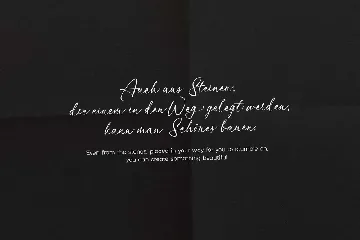 Auch aus Steinen,
die einem in den Weg gelegt werden,
kann man Schönes bauen.
Even from the stones, placed in your way for you to
you can create something beautiful